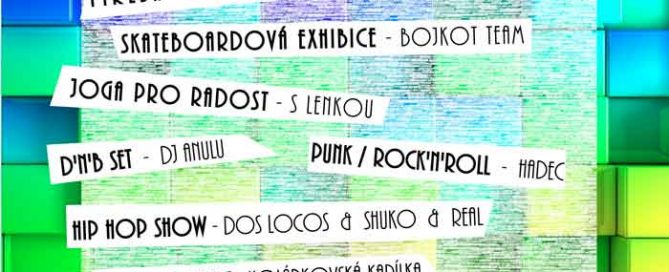 SKATEBOARDOVÁ EXHIBICE - BOJKOT TEAM
JOGA PRO RADOST - S LENKOU
D'N'B SET - DJ ANULU
PUNK / ROCK'N'ROLL - HADEC
HIP HOP SHOW - DOS LOCOS & SHUKO & REAL